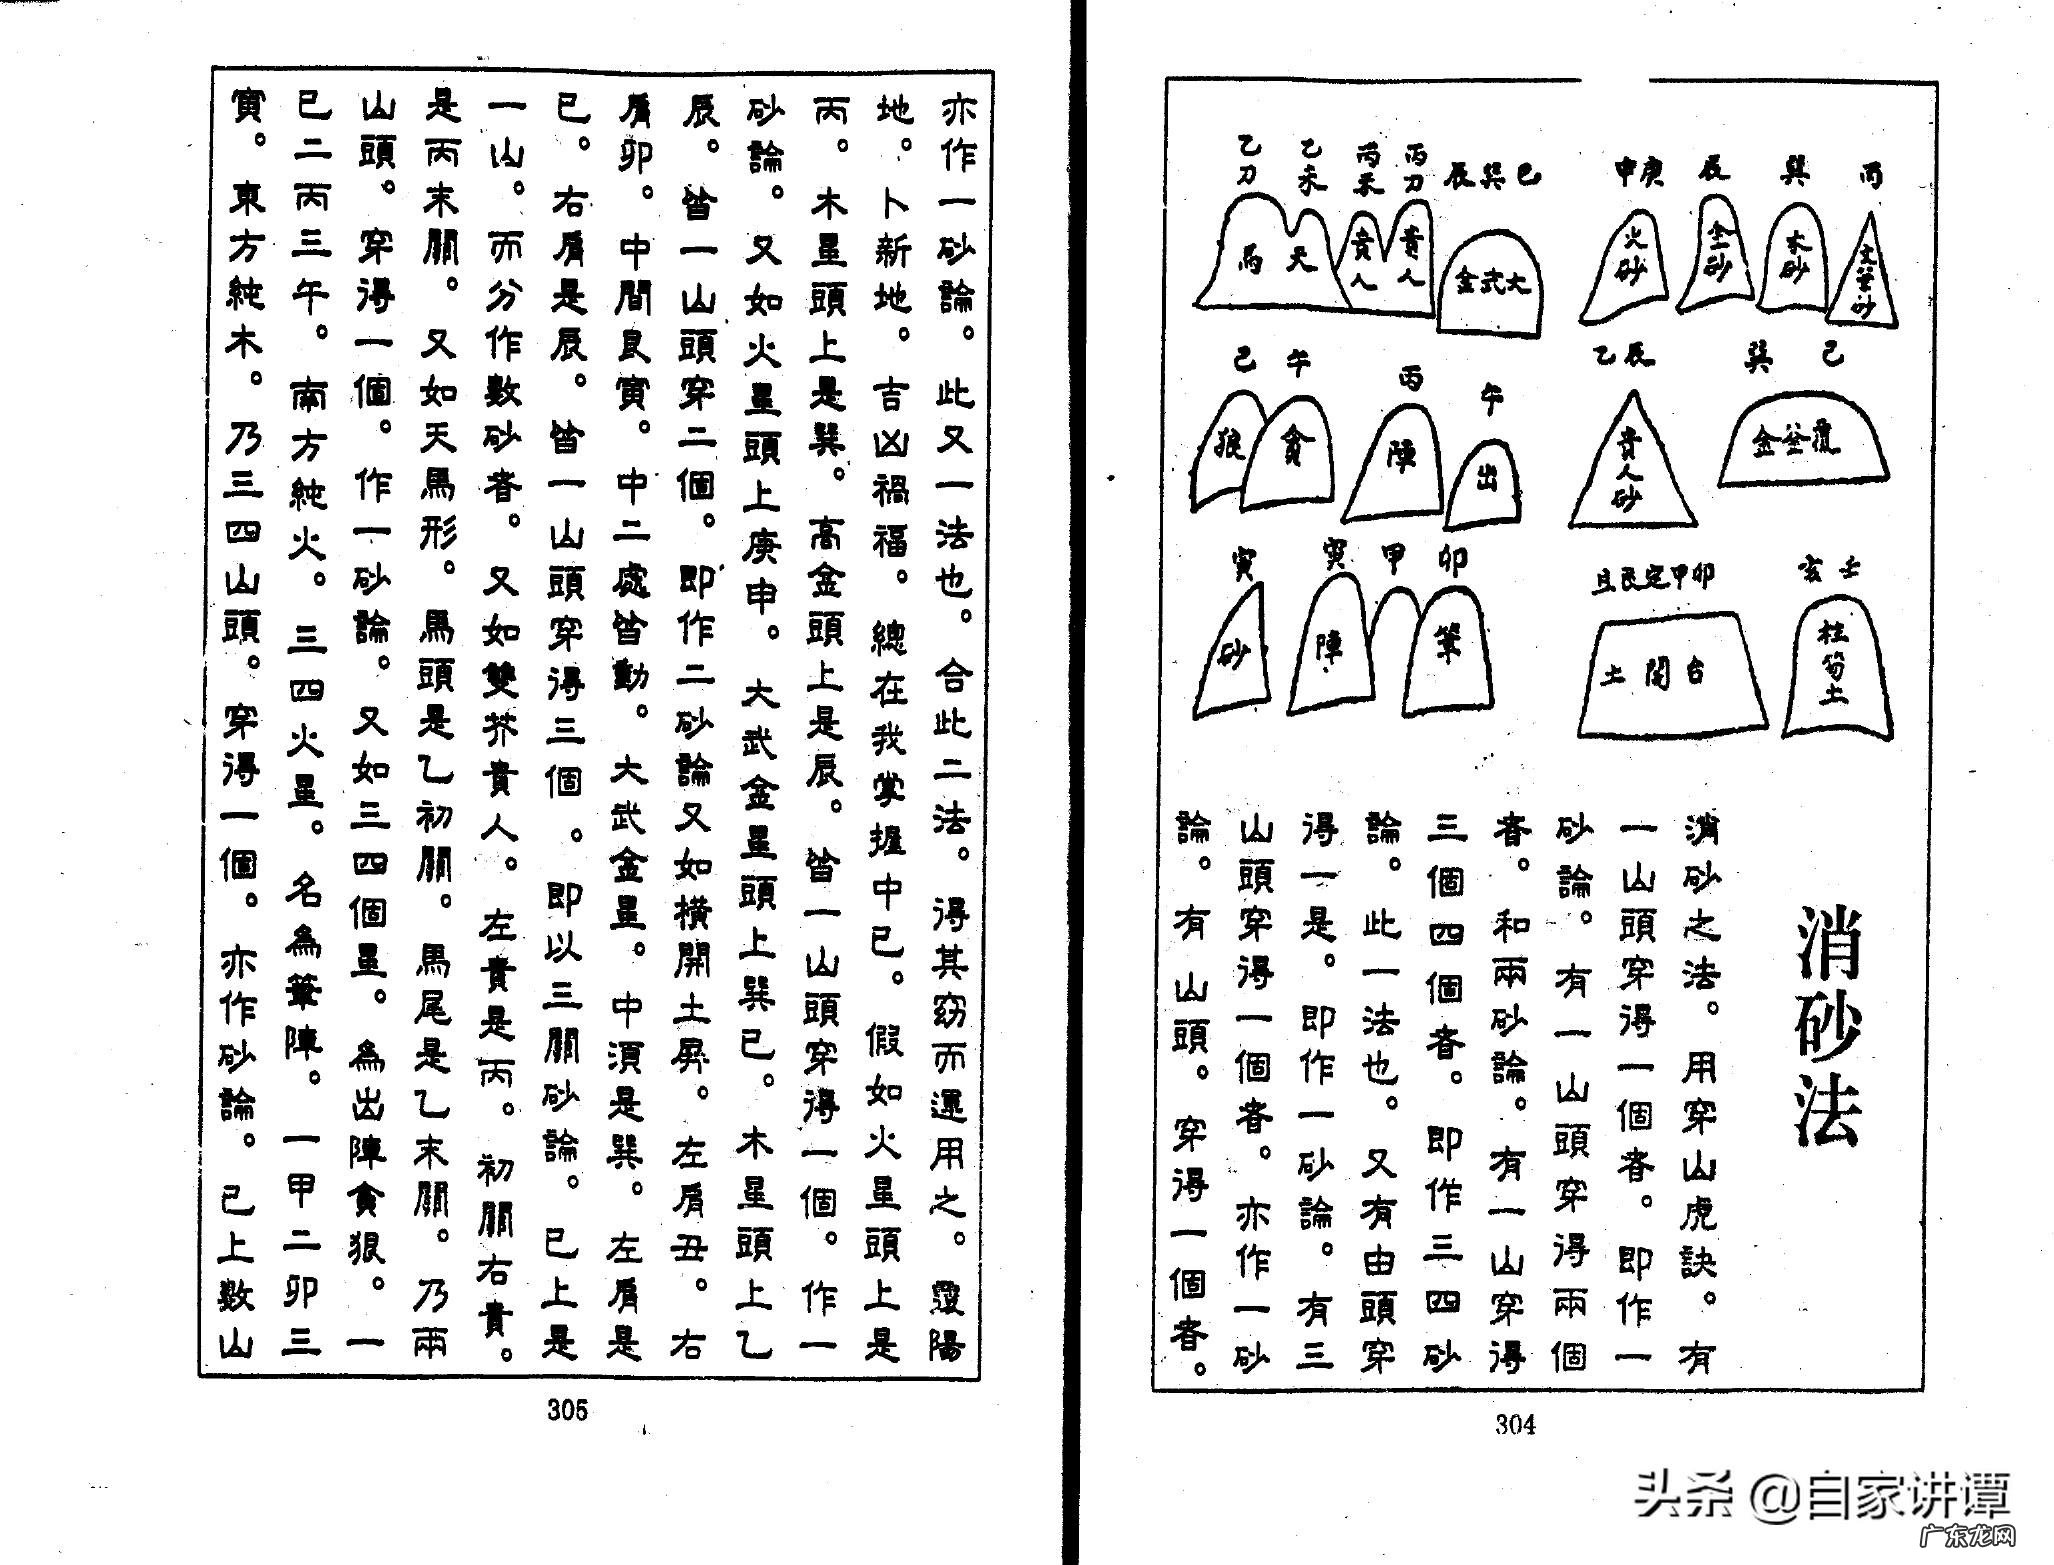 丙
巽
辰
申庚
文筆砂
木砂
金砂
火砂
辰巽巳
丙刀
丙未
乙未
乙刀
金武大
貴人
貴人
馬天
巽 己
乙辰
午
丙
己 午
金釜覆
貴人砂
出
陣
貪
狼
亥壬
卯
甲
寅
寅
柱笏土
土閣台
筆
陣
砂
消砂法
消砂之法。用穿山虎訣。有
一山頭穿得一個者。即作一
砂論。有一山頭穿得兩個
者。和兩砂論。有一山穿得
三個四個者。即作三四砂
論。此一法也。又有由頭穿
得一是。即作一砂論。有三
山頭穿得一個者。亦作一砂
論。有山頭。穿得一個者。
304
亦作一砂論。此又一法也。合此二法。得其窈而運用之。靈陽
地。卜新地。吉凶禍福。總在我掌握中已。假如火星頭上是
丙。木星頭上是巽。高金頭上是辰。皆一山頭穿得一個。作一
砂論。又如火星頭上庚申。大武金星頭上巽已。木星頭上乙
辰。皆一山頭穿二個。即作二砂論又如橫開土屏。左肩丑。右
肩卯。中間艮寅。中二處皆動。大武金星。中須是巽。左肩是
已。右肩是辰。皆一山頭穿得三個。即以三關砂論。已上是
一山。而分作数砂者。又如雙芥貴人。左貴是丙。初關右貴。
是丙末關。又如天馬形。馬頭是乙初關。馬尾是乙末關。乃兩
山頭。穿得一個。作一砂論。又如三四個星。為出陣貪狼。一
已二丙三午。南方純火。三四火星。名為筆陣。一甲二卯三
寅。東方純木。乃三四山頭。穿得一個。亦作砂論。已上数山
305
头条 @自家讲谭
广东龙网